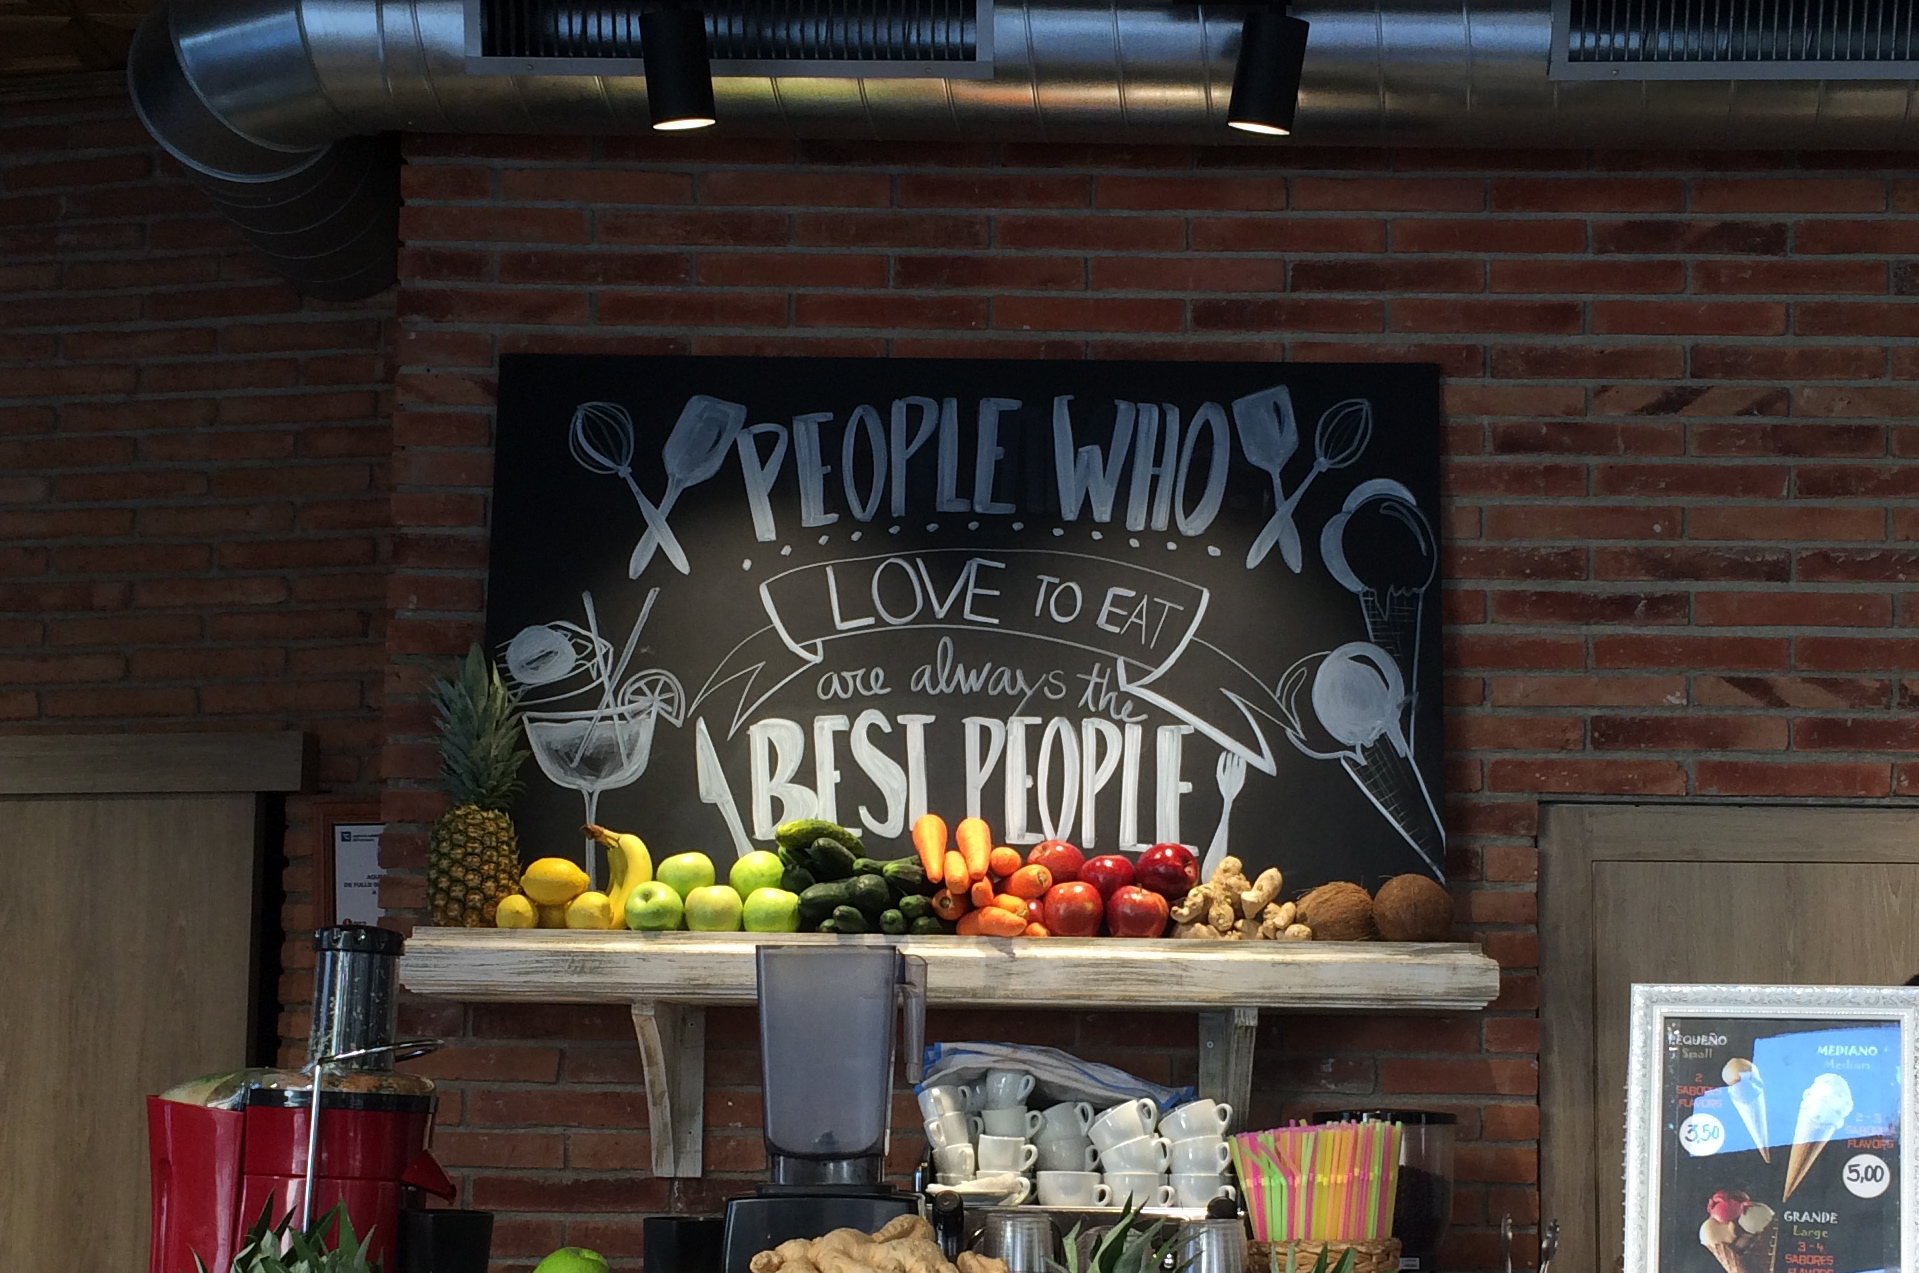 PEOPLE WHO
LOVE TO EAT
are always the
BEST PEOPLE
PEQUEÑO
Small
2
SABORES
FLAVORS
3,50
MEDIANO
Medium
2-3
SABORES
FLAVORS
5,00
GRANDE
Large
3-4
SABORES
FLAVORS